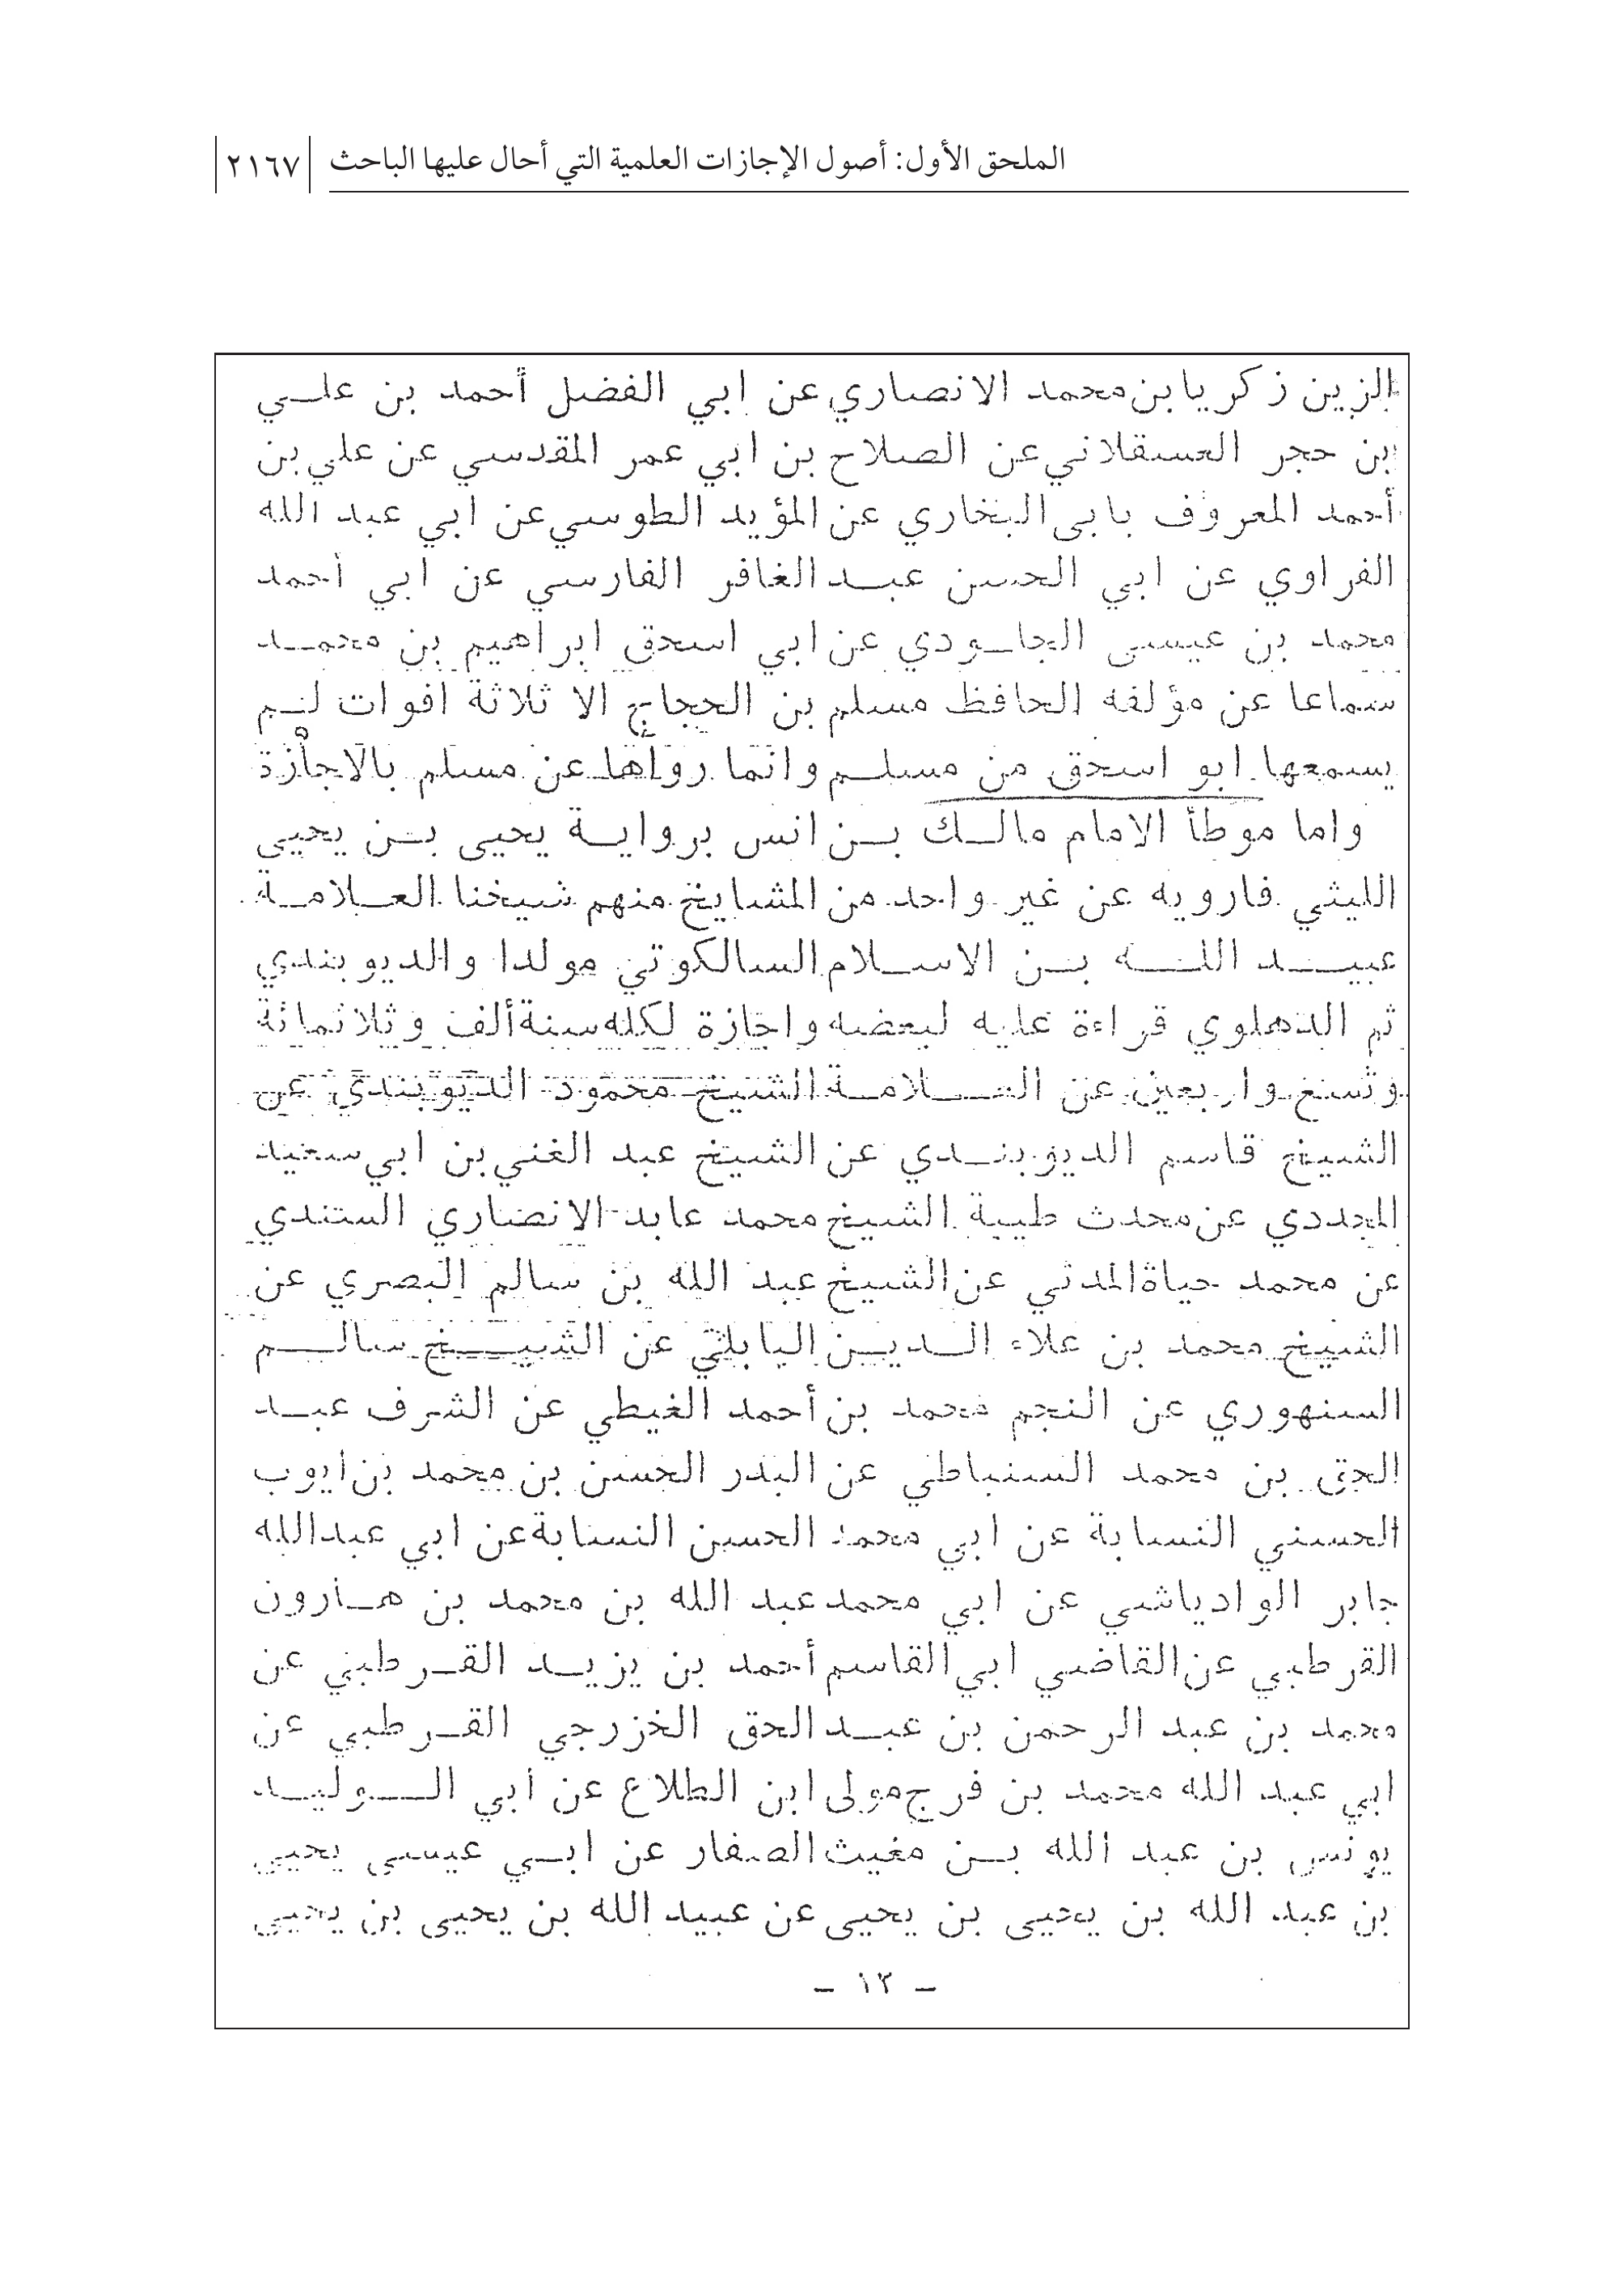 الملحق الأول: أصول الإجازات العلمية التي أحال عليها الباحث ٢١٦٧
الزين زكريا بن محمد الانصاري عن ابي الفضل أحمد بن علي
بن حجر العسقلاني عن الصلاح بن ابي عمر المقدسي عن علي بن
أحمد المعروف بابي البخاري عن المؤيد الطوسي عن ابي عبد الله
الفراوي عن ابي الحسن عبد الغافر الفارسي عن ابي أحمد
محمد بن عيسى الجلودي عن ابي اسحق ابراهيم بن محمد
سماعا عن مؤلفه الحافظ مسلم بن الحجاج الا ثلاثة افوات لم
يسمعها ابو اسحق من مسلم وانما رواها عن مسلم بالاجازة
واما موطأ الامام مالك بن انس برواية يحيى بن يحيى
الليثي فارويه عن غير واحد من المشايخ منهم شيخنا العلامة
عبيد الله بن الاسلام السالكوتي مولدا والديوبندي
ثم الدهلوي قراءة عليه لبعضه واجازة لكله سنة ألف وثلاثمائة
وتسع واربعين عن العلامة الشيخ محمود الديوبندي عن
الشيخ قاسم الديوبندي عن الشيخ عبد الغني بن ابي سعيد
المجددي عن محدث طيبة الشيخ محمد عابد الانصاري السندي
عن محمد حياة المدني عن الشيخ عبد الله بن سالم البصري عن
الشيخ محمد بن علاء الدين البابلي عن الشيخ سالم
السنهوري عن النجم محمد بن أحمد الغيطي عن الشرف عبد
الحق بن محمد السنباطي عن البدر الحسن بن محمد بن ايوب
الحسني النسابة عن ابي محمد الحسن النسابة عن ابي عبدالله
جابر الوادياشي عن ابي محمد عبد الله بن محمد بن هارون
القرطبي عن القاضي ابي القاسم أحمد بن يزيد القرطبي عن
محمد بن عبد الرحمن بن عبد الحق الخزرجي القرطبي عن
ابي عبد الله محمد بن فرج مولى ابن الطلاع عن أبي الوليد
يونس بن عبد الله بن مغيث الصفار عن ابي عيسى يحيى
بن عبد الله بن يحيى بن يحيى عن عبيد الله بن يحيى بن يحيى
– ١٣ –